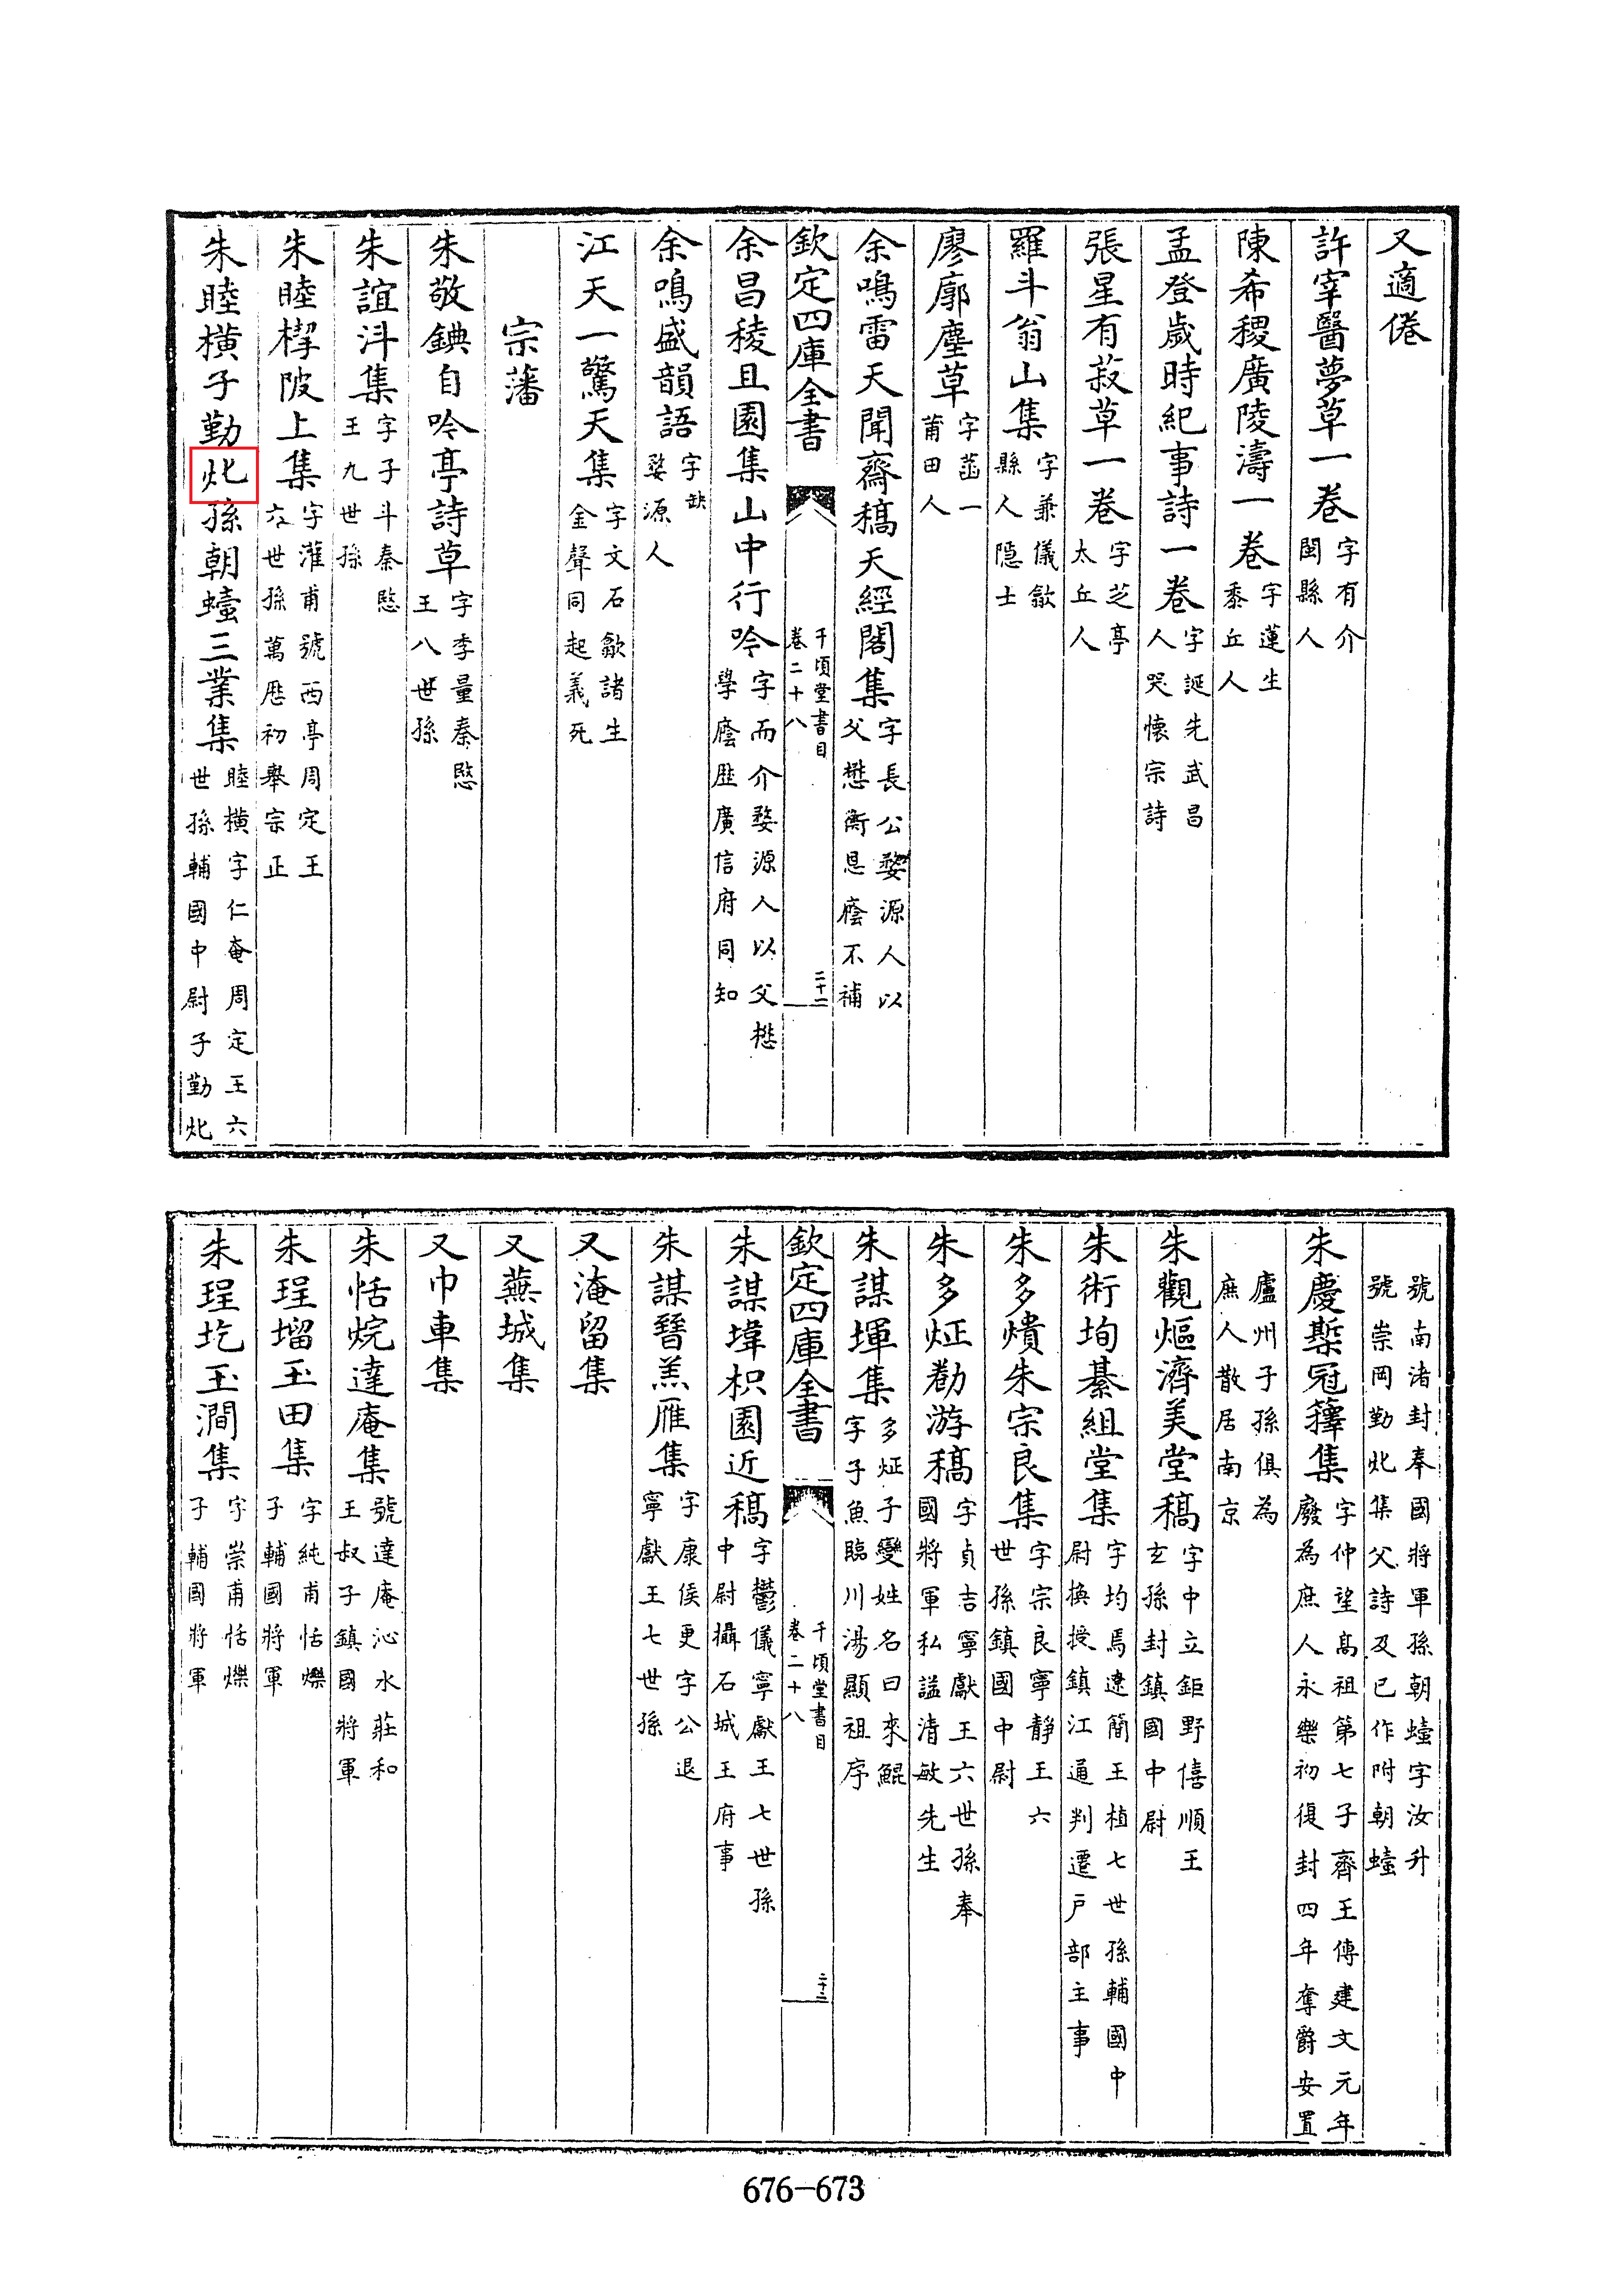 又適倦
許宰醫夢草一卷字有介閩縣人
陳希稷廣陵濤一卷字蓮生黍丘人
孟登歲時紀事詩一卷字誕先武昌人哭懷宗詩
張星有菽草一卷字芝亭太丘人
羅斗翁山集字兼儀歙縣人隱士
廖廓塵草字菡一莆田人
余鳴雷天聞齋稿天經閣集字長公婺源人以父懋衡恩廕不補
欽定四庫全書
千頃堂書目
卷二十八
二十一
余昌稜且園集山中行吟字而介婺源人以父懋學廕歷廣信府同知
余鳴盛韻語字缺婺源人
江天一驚天集字文石歙諸生金聲同起義死
宗藩
朱敬鐭自吟亭詩草字季量秦愍王八世孫
朱誼汻集字子斗秦愍王九世孫
朱睦㮮陂上集字灌甫號西亭周定王六世孫萬厯初舉宗正
朱睦横子勤㶨孫朝𧑅三業集睦横字仁菴周定王六世孫輔國中尉子勤㶨
號南渚封奉國將軍孫朝𧑅字汝升號崇岡勤㶨集父詩及已作附朝𧑅
廬州子孫俱為庶人散居南京
朱慶㮣冠籜集字仲望髙祖第七子齊王傅建文元年廢為庶人永樂初復封四年奪爵安置
朱觀熰濟美堂稿字中立鉅野僖順王玄孫封鎮國中尉
朱術坸綦組堂集字均焉遼簡王植七世孫輔國中尉換授鎮江通判遷戶部主事
朱多熿朱宗良集字宗良寧靜王六世孫鎮國中尉
朱多炡勌游稿字貞吉寧獻王六世孫奉國將軍私諡清敏先生
朱謀㙔集多炡子變姓名曰來鯤字子魚臨川湯顯祖序
欽定四庫全書
千頃堂書目
卷二十八
二十二
朱謀㙔枳園近稿字鬱儀寧獻王七世孫中尉攝石城王府事
朱謀㬜羔雁集字康侯更字公退寧獻王七世孫
又淹留集
又蕪城集
又巾車集
朱恬烷達庵集號達庵沁水莊和王叔子鎮國將軍
朱珵塯玉田集字純甫恬爍子輔國將軍
朱珵圪玉澗集字崇甫恬爍子輔國將軍
676-673